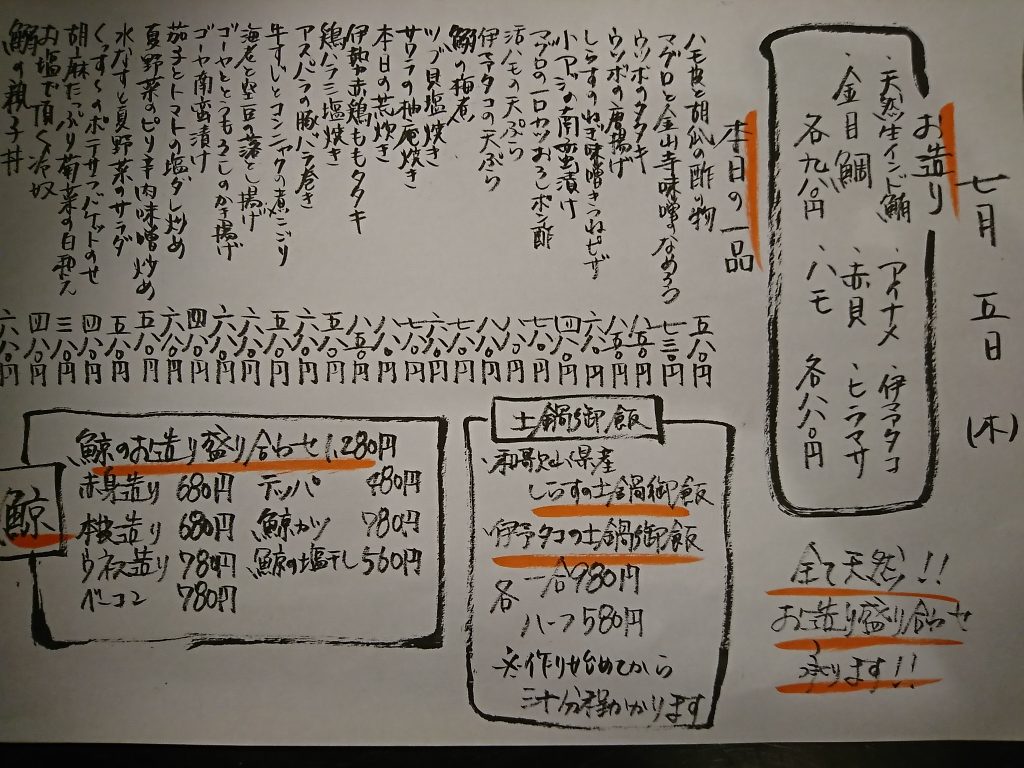 七月 五日 (木)
お造り
・天然生インド鮪 ・アイナメ ・伊予タコ
・金目鯛 ・赤貝 ・ヒラマサ
各九八〇円 ・ハモ 各八八〇円
全て天然!!
お造り盛り合わせ
承ります!!
本日の一品
ハモ皮と胡瓜の酢の物 五八〇円
マグロと金山寺味噌のなめろう 七三〇円
ウツボのタタキ 八五〇円
ウツボの唐揚げ 八五〇円
しらすのねぎ味噌きつねピザ 六八〇円
小アジの南蛮漬け 四八〇円
マグロの一口カツおろしポン酢 七八〇円
活ハモの天ぷら
伊予タコの天ぷら
鮪の梅煮
ツブ貝塩焼き
サワラの柚庵焼き
本日の荒炊き
伊勢赤鶏ももタタキ
鶏ハラミ塩焼き
アスパラの豚バラ巻き
牛すじとコンニャクの煮こごり
海老と空豆の落とし揚げ
ゴーヤととうもろこしのかき揚げ
ゴーヤ南蛮漬け
茄子とトマトの塩ダレ炒め
夏野菜のピリ辛肉味噌炒め 五八〇円
水なすと夏野菜のサラダ 五八〇円
くつすくのポテサラバケットのせ 四八〇円
胡麻たっぷり菊菜の白和え 三八〇円
お塩で頂く冷奴 四八〇円
鮪の親子丼 六八〇円
土鍋御飯
・和歌山県産
しらすの土鍋御飯
・伊予タコの土鍋御飯
各 一合980円
ハーフ580円
※作り始めてから
三十分程かかります
鯨
鯨のお造り盛り合わせ 1,280円
赤身造り 680円 テッパ 480円
本皮造り 680円 鯨カツ 780円
ウネス造り 780円 鯨の塩干し 560円
ベーコン 780円